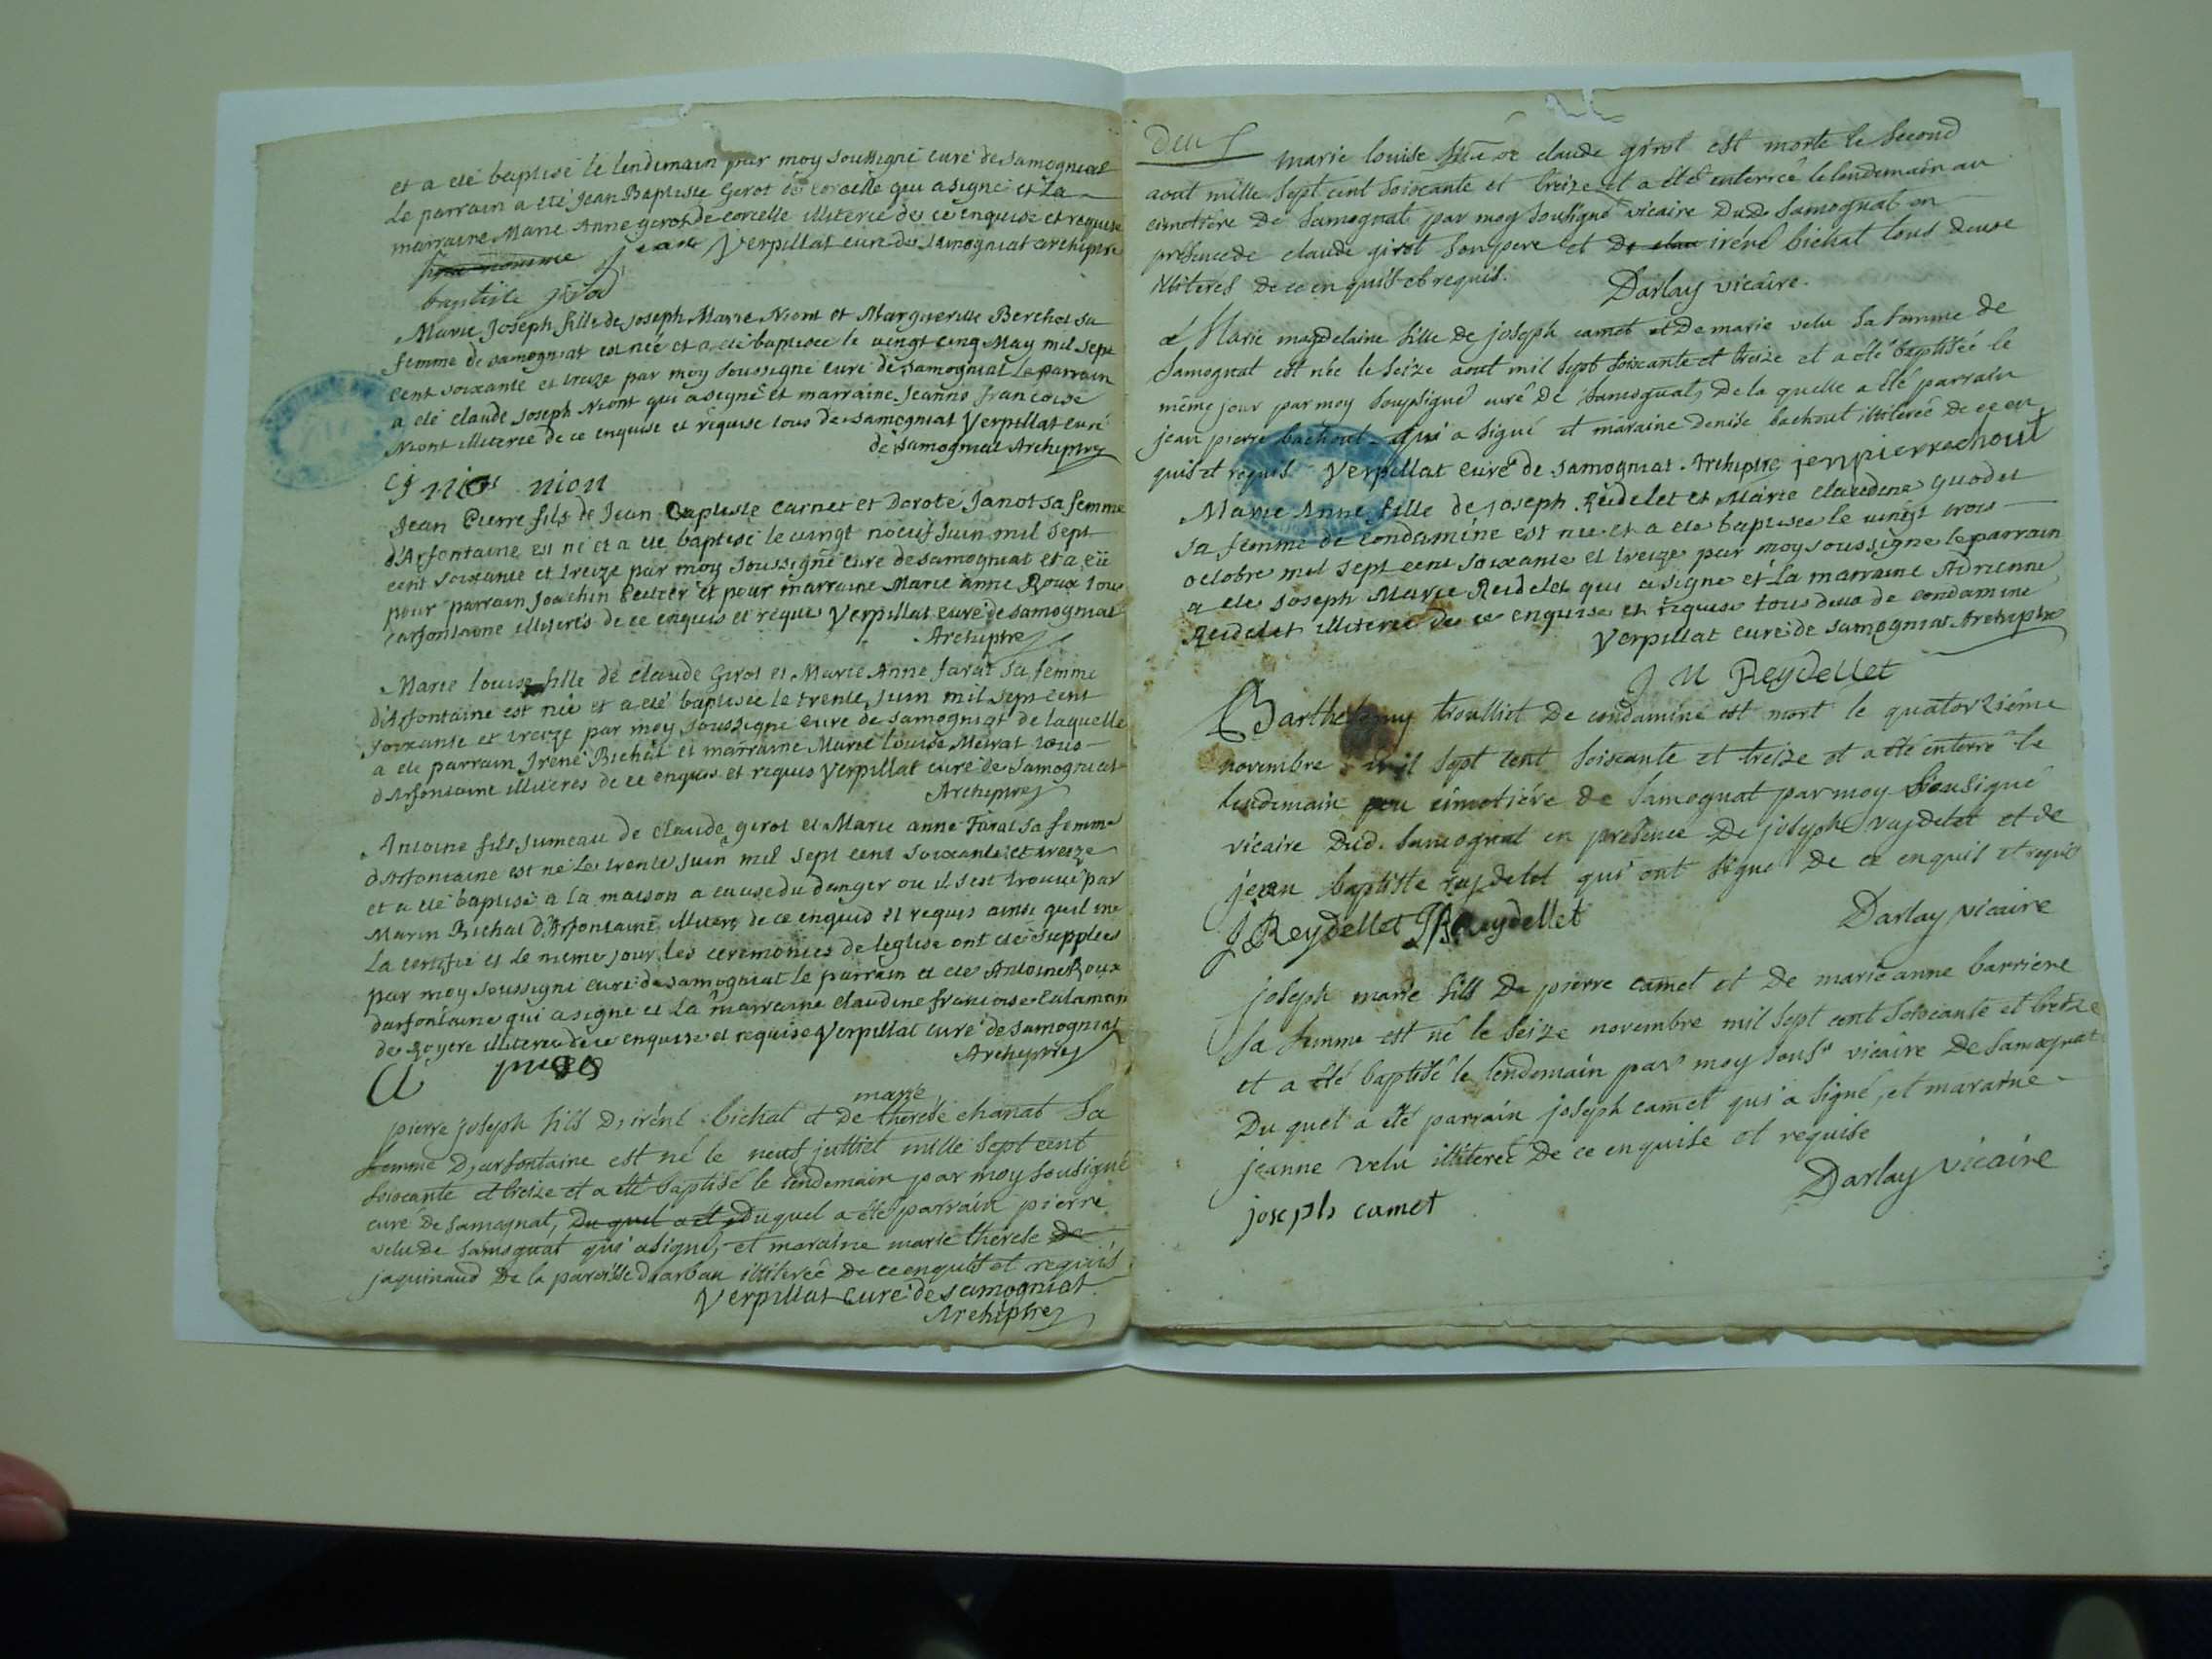 et a eté baptisé le lendemain par moy soussigné curé de samogniat
Le parrain a eté Jean Baptiste Gerot de corcelle qui a signé et La
marraine Marie Anne gerot de corcelle illiterée de ce enquise et requise
jean Verpillat curé de samogniat archiptre
baptiste girod
Marie Joseph fille de Joseph Marie Niont et Margueritte Berchet sa
femme de samogniat est née et a eté baptisée le vingt cinq May mil sept
cent soixante et treize par moy soussigné curé de samogniat Le parrain
a eté claude joseph Niont qui a signé et marraine Jeanne francoise
Niont illiterée de ce enquise et requise tous de samogniat Verpillat curé
de samogniat Archiptre
nion
Jean Pierre fils de Jean Baptiste Carnet et Doroté Janot sa femme
d'Arfontaine est né et a eté baptisé le vingt noeuf Juin mil sept
cent soixante et treize par moy soussigné curé de samogniat et a eü
pour parrain Joachin et pour marraine Marie anne Roux tous
d'arfontaine illiterés de ce enquis et requis Verpillat curé de samogniat
Archiptre
Marie louise fille de claude Girot et Marie Anne farat sa femme
d'Arfontaine est née et a eté baptisée le trente Juin mil sept cent
soixante et treize par moy soussigné curé de samogniat de laquelle
a eté parrain Irené Bichat et marraine Marie louise Meirat tous
d'Arfontaine illiteres de ce enquis et requis Verpillat curé de Samogniat
Archiptre
Antoine fils jumeau de claude girot et Marie anne Farat sa femme
d'Arfontaine est né Le trente Juin mil sept cent soixante et treize
et a eté baptisé a la maison a cause du danger ou il s'est trouvé par
Marin Bichat d'Arfontaine illiteré de ce enquis et requis ainsi quil me
La certifié et le meme jour les ceremonies de leglise ont eté supplées
par moy soussigné curé de samogniat le parrain a eté Antoine Roux
darfontaine qui a signé et la marraine claudine francoise Calamar
de Royere illiterée de ce enquise et requise Verpillat curé de samogniat
Archiptre
marie
pierre joseph fils D'irené bichat et de therese chanat sa
femme D'arfontaine est né le neuf julliet mille sept cent
soixante et treize et a eté baptisé le lendemain par moy sousigné
curé de samognat, Du quel a été Duquel a été parrain pierre
velu de samognat qui a signé, et maraine marie therese de
jaquinaud De la paroisse darban illiterée De ce enquis et requis
Verpillat curé de samogniat
Archiptre
marie louise fille de claude girot est morte le second
aout mille sept cent soixante et treize et a été enterrée le lendemain au
cimetiere De samognat par moy sousigné vicaire Dud. samognat en
presence de claude girot son pere et irené bichat tous deux
illiterés De ce enquis et requis.
Darlay vicaire.
Marie magdelaine fille de joseph camet et De marie velu sa femme de
samognat est née le seize aout mil sept soixante et treize et a été baptisée le
même jour par moy soupsigné curé De samognat, De la quelle a été parrain
jean pierre bachout qui a signé et maraine denise bachout illiterée de ce en
quis et requis Verpillat curé de samogniat Archiptre jenpierrechout
Marie Anne fille de joseph Reidelet et Marie claudine guodet
sa femme de condamine est née et a eté baptisée le vingt trois
octobre mil sept cent soixante et treize par moy soussigné le parrain
a eté Joseph Marie Reidelet qui a signé et la marraine Adrienne
Reidelet illiterée de ce enquise et requise tous deux de condamine
Verpillat curé de samogniat Archiptre
J M Reydellet
Barthelemy troulliet De condamine est mort le quatorzième
novembre mil sept cent soixante et treize et a été enterré le
lendemain cimetiére de samognat par moy sousigné
vicaire Dud. samognat en presence De joseph reydelet et de
jean baptiste reydelet qui ont signé De ce enquis et requis
J Reydellet JB Reydellet Darlay vicaire
joseph marie fils De pierre camet et De marie anne barriere
sa femme est né le seize novembre mil sept cent soixante et treize
et a été baptisé le lendemain par moy souss. vicaire De samognat
Du quel a été parrain joseph camet qui a signé, et maraine
jeanne velu illiterée De ce enquise et requise
Darlay vicaire
joseph camet